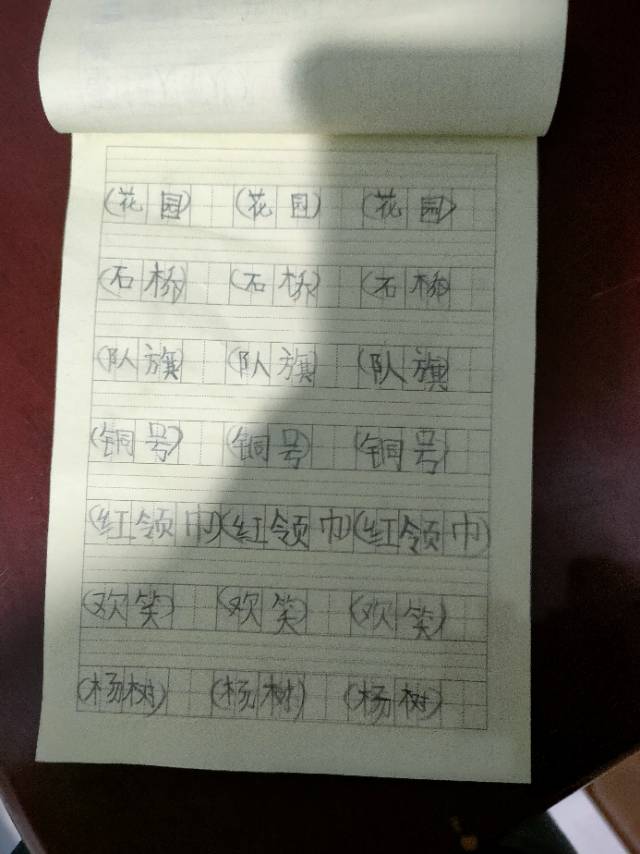 (花园) (花园) (花园)
(石桥) (石桥) (石桥)
(队旗) (队旗) (队旗)
(铜号) (铜号) (铜号)
(红领巾) (红领巾) (红领巾)
(欢笑) (欢笑) (欢笑)
(杨树) (杨树) (杨树)